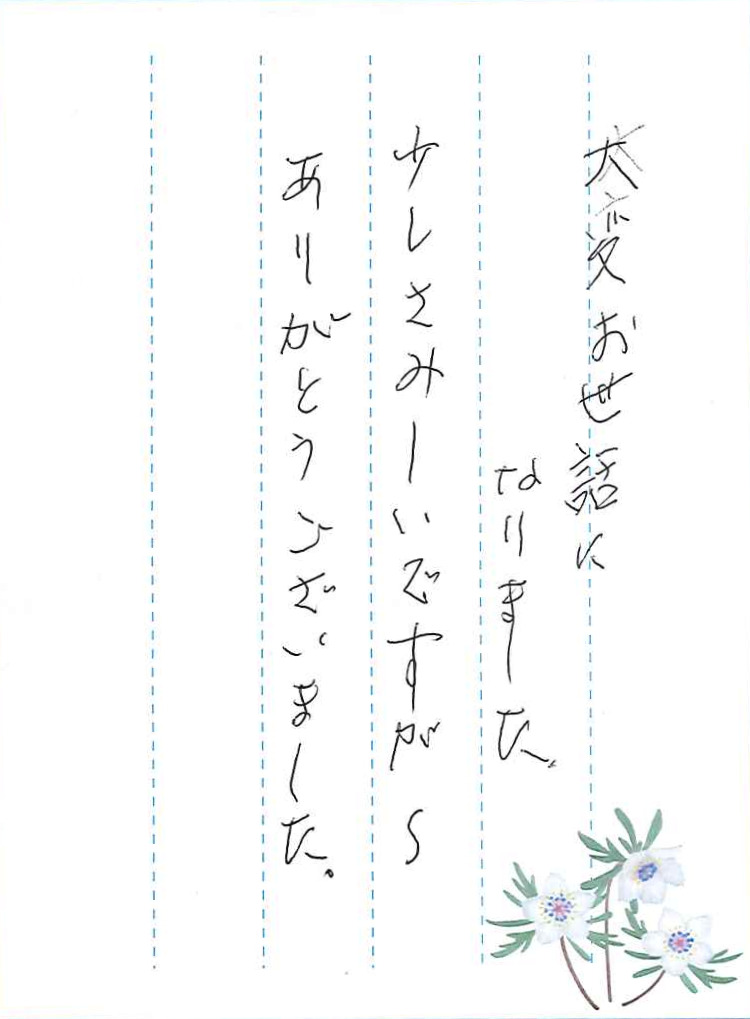 大変お世話に
なりました。
少しさみしいですが〜
ありがとうございました。